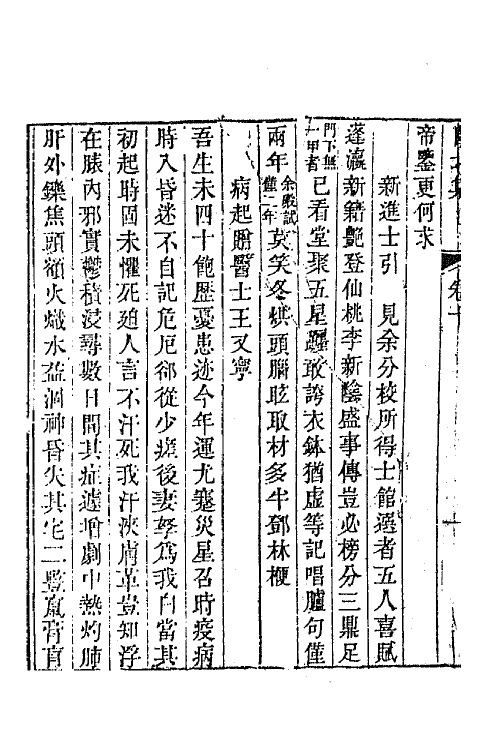 帝鑒更何求
新進士引　見余分校所得士館選者五人喜賦
蓬瀛新籍艷登仙桃李新陰盛事傳豈必榜分三鼎足
門下無一甲者已看堂聚五星躔敢誇衣鉢猶虛等記唱臚句僅
兩年余殿試僅二年莫笑冬烘頭腦眩取材多半鄧林楩
病起贈醫士王又寧
吾生未四十飽歷憂患迹今年運尤蹇災星召時疫病
時入昏迷不自記危厄卻從少瘥後妻孥為我白當其
初起時固未懼死迫人言不汗死我汗浹膚革豈知浮
在膝內邪實鬱積浸尋數日間其症遽增劇中熱灼肺
肝外鑠焦頭額火熾水益涸神昏失其宅二豎竄膏肓